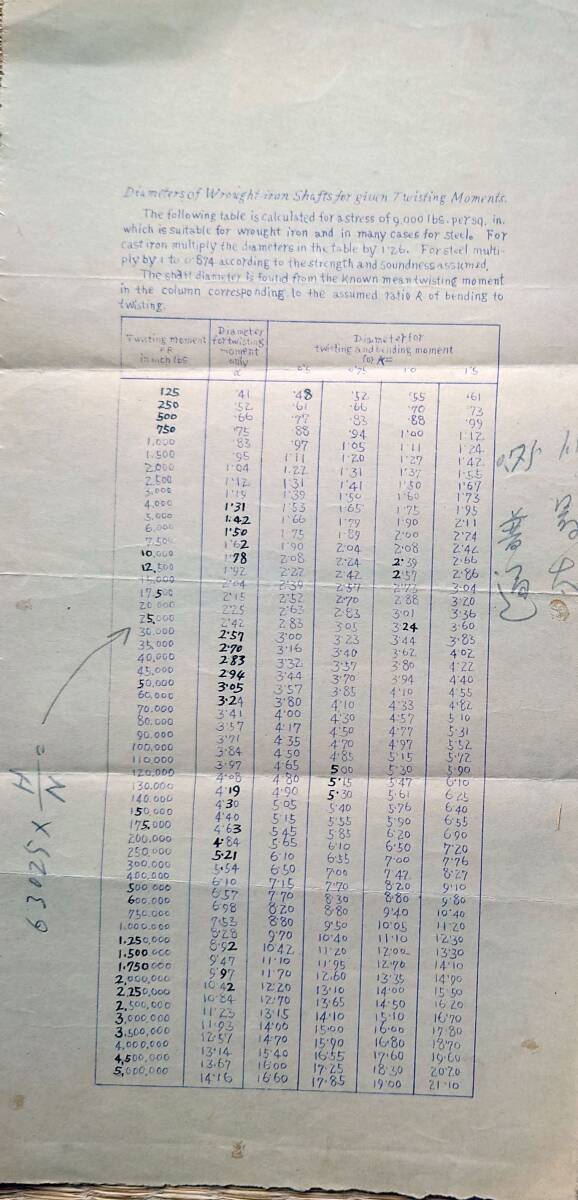 Diameters of Wrought-iron Shafts for given Twisting Moments.
The following table is calculated for a stress of 9,000 lbs. per sq. in.
which is suitable for wrought iron and in many cases for steel. For
cast iron multiply the diameters in the table by 1·26. For steel multi-
ply by 1 to 0·874 according to the strength and soundness assumed.
The shaft diameter is found from the known mean twisting moment
in the column corresponding to the assumed ratio R of bending to
twisting.
Twisting moment PR in inch lbs Diameter for twisting moment only d Diameter for twisting and bending moment for K=
0·5 0·75 1·0 1·5
125 ·41 ·48 ·52 ·55 ·61
250 ·52 ·61 ·66 ·70 ·73
500 ·66 ·77 ·83 ·88 ·99
750 ·75 ·88 ·94 1·00 1·12
1,000 ·83 ·97 1·05 1·11 1·24
1,500 ·95 1·11 1·20 1·27 1·42
2,000 1·04 1·22 1·31 1·37 1·55
2,500 1·12 1·31 1·41 1·50 1·67
3,000 1·19 1·39 1·50 1·60 1·73
4,000 1·31 1·53 1·65 1·75 1·95
5,000 1·42 1·66 1·79 1·90 2·11
6,000 1·50 1·75 1·89 2·00 2·24
7,500 1·62 1·90 2·04 2·08 2·42
10,000 1·78 2·08 2·24 2·39 2·66
12,500 1·92 2·22 2·42 2·57 2·86
15,000 2·04 2·39 2·57 2·73 3·04
17,500 2·15 2·52 2·70 2·88 3·20
20,000 2·25 2·63 2·83 3·01 3·36
25,000 2·42 2·83 3·05 3·24 3·60
30,000 2·57 3·00 3·23 3·44 3·83
35,000 2·70 3·16 3·40 3·62 4·02
40,000 2·83 3·32 3·57 3·80 4·22
45,000 2·94 3·44 3·70 3·94 4·40
50,000 3·05 3·57 3·85 4·10 4·55
60,000 3·24 3·80 4·10 4·33 4·82
70,000 3·41 4·00 4·30 4·57 5·10
80,000 3·57 4·17 4·50 4·77 5·31
90,000 3·71 4·35 4·70 4·97 5·52
100,000 3·84 4·50 4·85 5·15 5·72
110,000 3·97 4·65 5·00 5·30 5·90
120,000 4·08 4·80 5·15 5·47 6·10
130,000 4·19 4·90 5·30 5·61 6·25
140,000 4·30 5·05 5·40 5·76 6·40
150,000 4·40 5·15 5·55 5·90 6·55
175,000 4·63 5·45 5·85 6·20 6·90
200,000 4·84 5·65 6·10 6·50 7·20
250,000 5·21 6·10 6·55 7·00 7·76
300,000 5·54 6·50 7·00 7·42 8·27
400,000 6·10 7·15 7·70 8·20 9·10
500,000 6·57 7·70 8·30 8·80 9·80
600,000 6·98 8·20 8·80 9·40 10·40
750,000 7·53 8·80 9·50 10·05 11·20
1,000,000 8·28 9·70 10·40 11·10 12·30
1,250,000 8·92 10·42 11·20 12·00 13·30
1,500,000 9·47 11·10 11·95 12·70 14·10
1,750,000 9·97 11·70 12·60 13·35 14·90
2,000,000 10·42 12·20 13·10 14·00 15·50
2,250,000 10·84 12·70 13·65 14·50 16·20
2,500,000 11·23 13·15 14·10 15·10 16·70
3,000,000 11·93 14·00 15·00 16·00 17·80
3,500,000 12·57 14·70 15·90 16·80 18·70
4,000,000 13·14 15·40 16·55 17·60 19·60
4,500,000 13·67 16·00 17·25 18·30 20·20
5,000,000 14·16 16·60 17·85 19·00 21·10
63025 × H/N =
0.75
普通